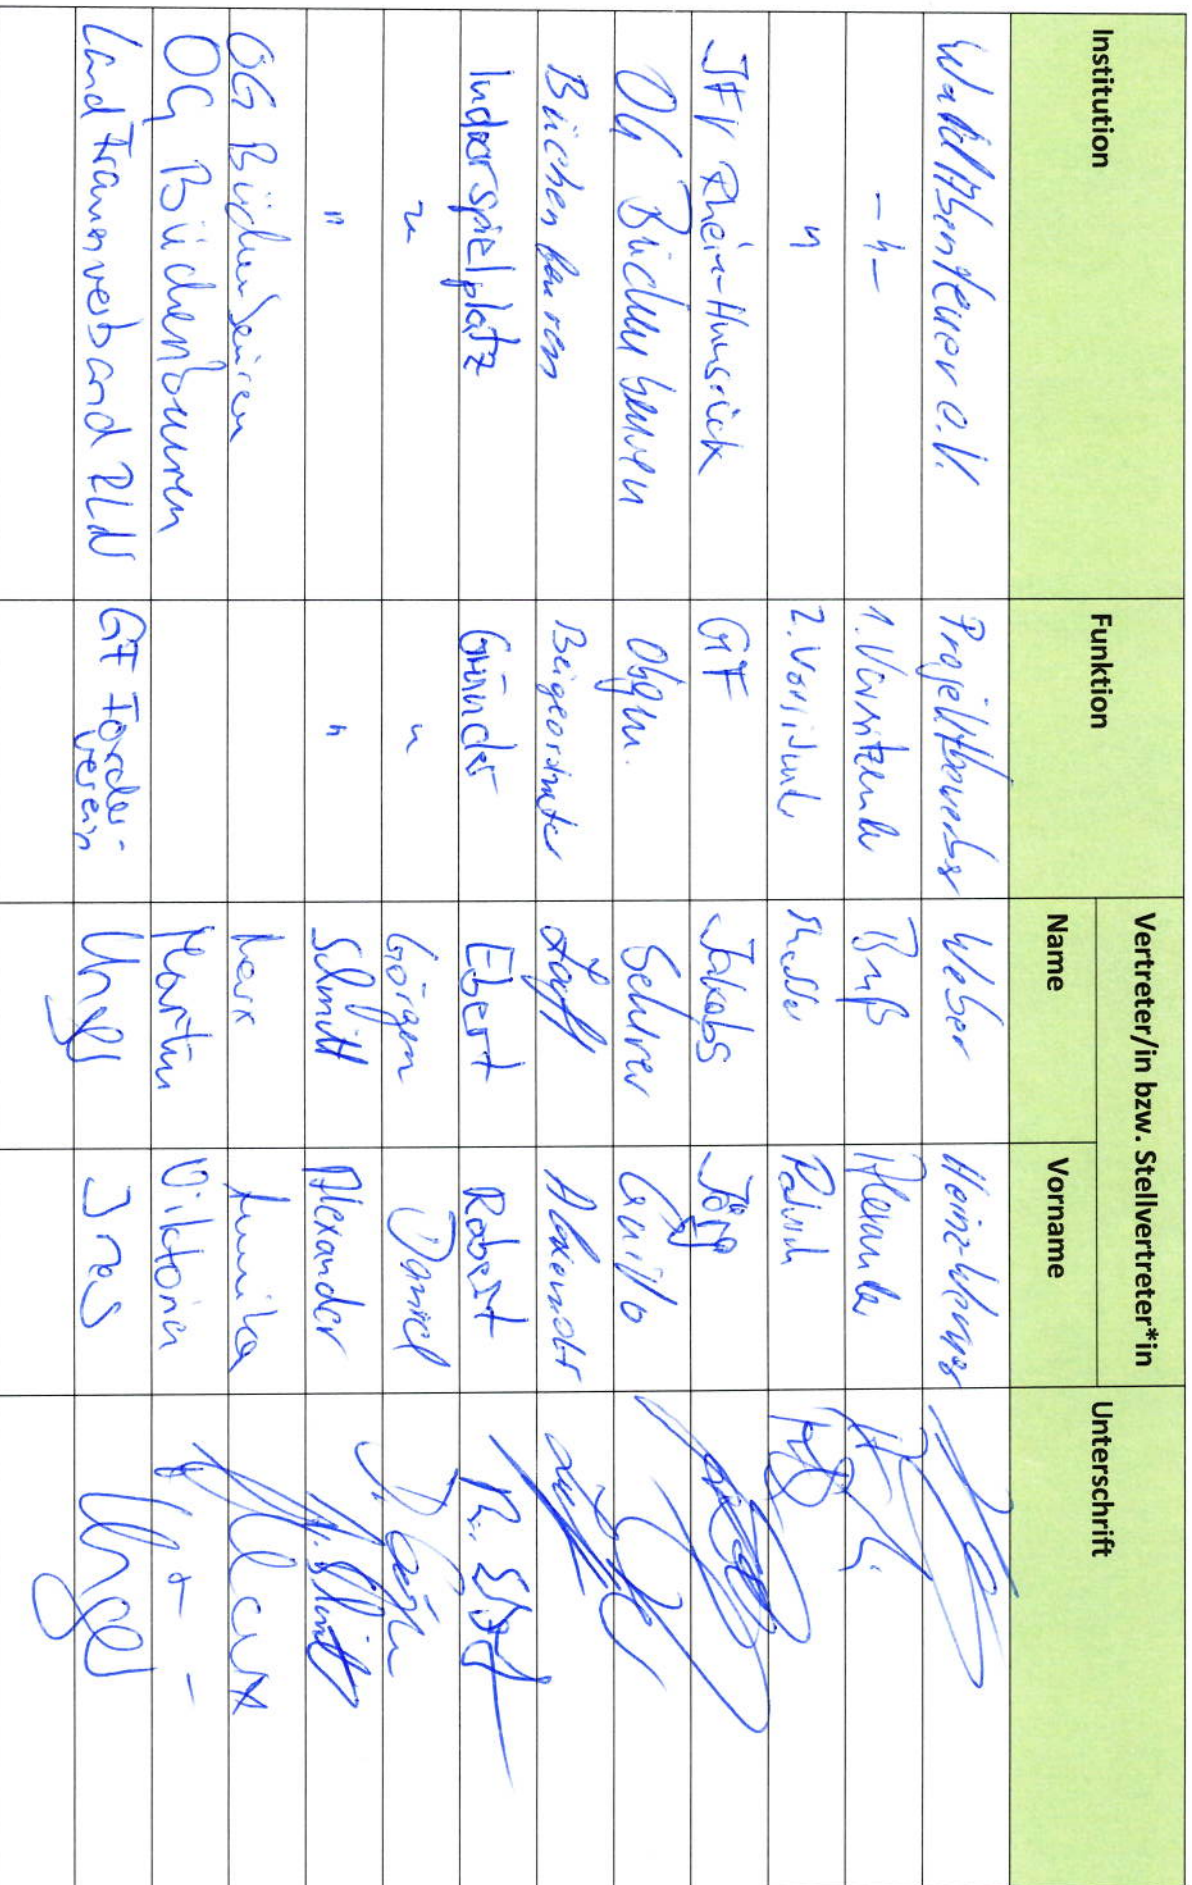 Institution Funktion Vertreter/in bzw. Stellvertreter*in Unterschrift
Name Vorname
WaldAbenteuer e.V. Projektbewerber Weber Heinz-Werner
-"- 1. Vorsitzende Buß Alexander
" 2. Vorsitzende Patrick
JFV Rhein-Hunsrück GF Jakobs Jörg
OG Büchenbeuren Obgm. Scherer Guido
Büchenbeuren Beigeordneter Alexander
Indoorspielplatz Gründer Ebert Robert R. Ebert
" " Görgen Daniel D. Görgen
" " Schmitt Alexander A. Schmitt
OG Büchenbeuren Marx Annika A. Marx
OG Büchenbeuren Martin Viktoria
LandFrauenverband RLN GF Förder-
verein Unger Ines Unger